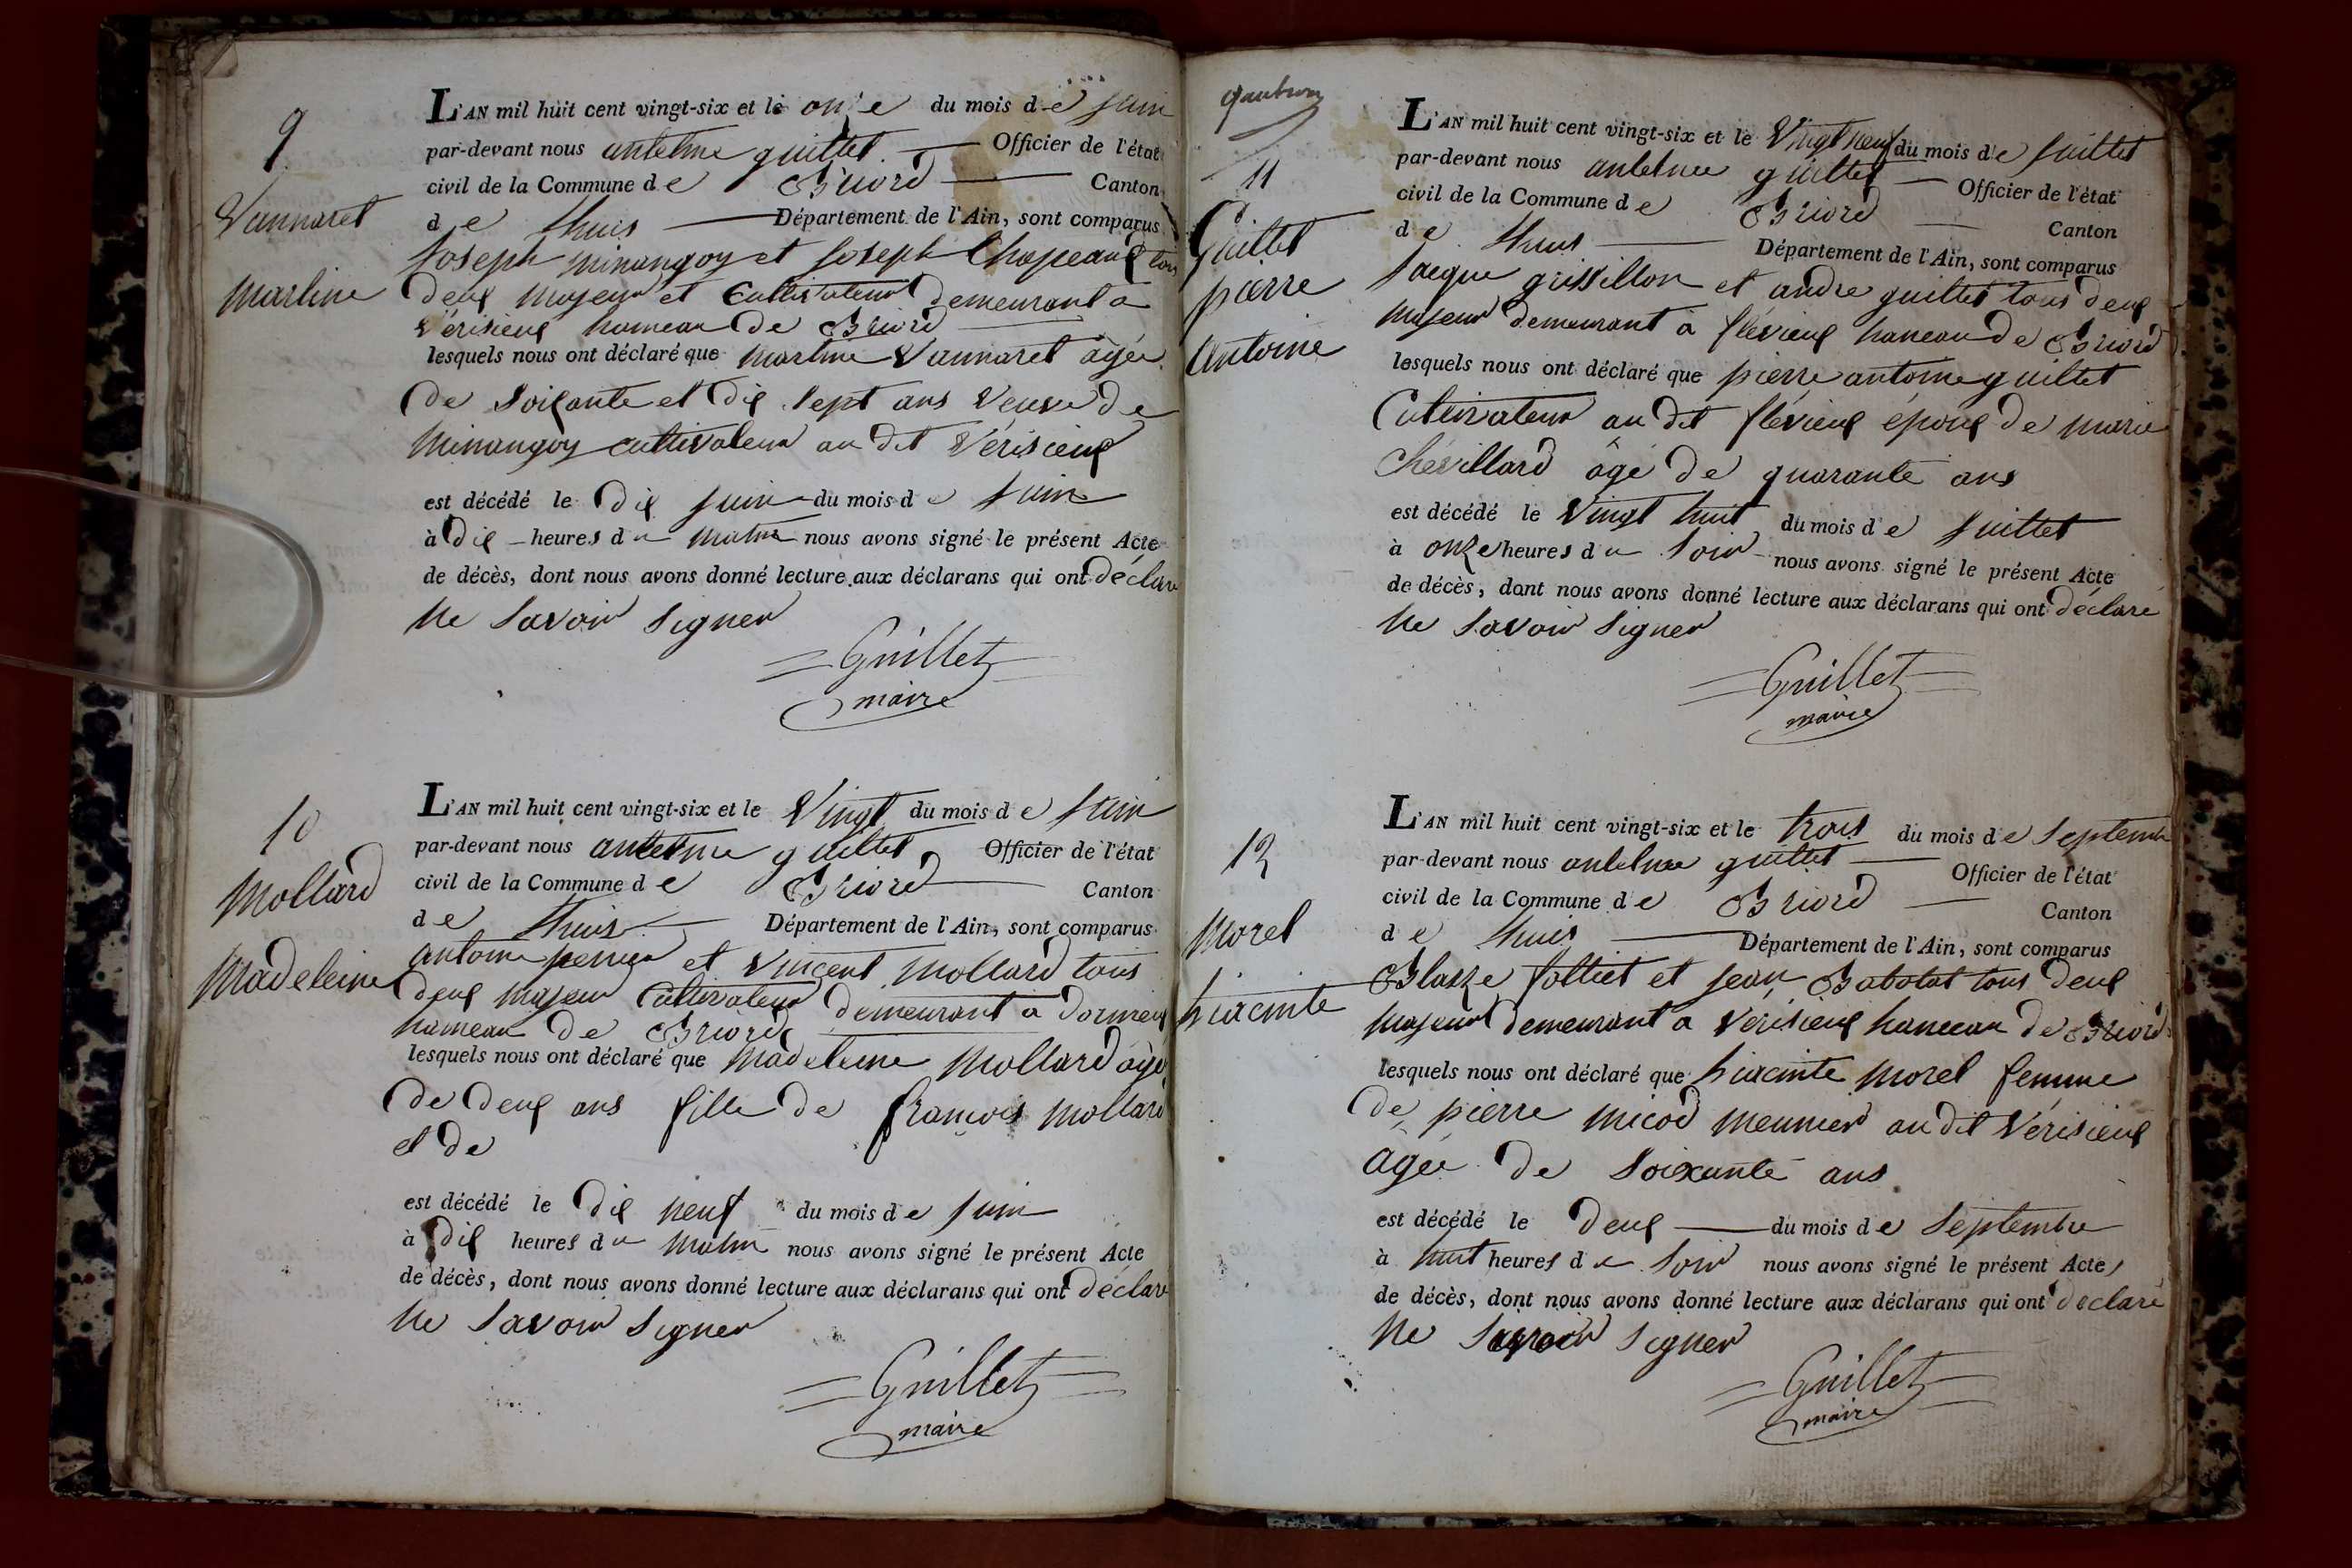 9
Vannaret
Martine
L'AN mil huit cent vingt-six et le onze du mois de juin
par-devant nous antelme guillet Officier de l'état
civil de la Commune de Briord Canton
de Lhuis Département de l'Ain, sont comparus
Joseph minangoy et Joseph Chapeaux tous
deux majeur et Cultivateur demeurant a
Vérisieux hameau de Briord
lesquels nous ont déclaré que martine Vannaret agée
de soixante et dix sept ans Veuve de
minangoy cultivateur au dit Vérisieux
est décédé le dix juin du mois de juin
à dix heures du matin nous avons signé le présent Acte
de décès, dont nous avons donné lecture aux déclarans qui ont déclaré
ne savoir signer
Guillet
maire
10
Mollard
Madeleine
L'AN mil huit cent vingt-six et le Vingt du mois de juin
par-devant nous antelme guillet Officier de l'état
civil de la Commune de Briord Canton
de Lhuis Département de l'Ain, sont comparus
antoine perrier et Vincent Mollard tous
deux majeur Cultivateur demeurant a Dornieux
hameau de Briord
lesquels nous ont déclaré que Madeleine Mollard agé
de deux ans fille de francois Mollard
et de
est décédé le dix neuf du mois de juin
à dix heures du matin nous avons signé le présent Acte
de décès, dont nous avons donné lecture aux déclarans qui ont déclaré
ne savoir signer
Guillet
maire
11
Guillet
pierre
antoine
L'AN mil huit cent vingt-six et le Vingt neuf du mois de juillet
par-devant nous antelme guillet Officier de l'état
civil de la Commune de Briord Canton
de Lhuis Département de l'Ain, sont comparus
Jacque grissillon et andre guillet tous deux
majeur demeurant à flévieux hameau de Briord
lesquels nous ont déclaré que pierre antoine guillet
Cultivateur au dit flévieux époux de marie
Chevillard âgé de quarante ans
est décédé le Vingt huit du mois de juillet
à onze heures du soir nous avons signé le présent Acte
de décès, dont nous avons donné lecture aux déclarans qui ont déclaré
ne savoir signer
Guillet
maire
12
Morel
hiacinte
L'AN mil huit cent vingt-six et le trois du mois de septembre
par-devant nous antelme guillet Officier de l'état
civil de la Commune de Briord Canton
de Lhuis Département de l'Ain, sont comparus
Blaize folliet et jean Babolat tous deux
majeur demeurant a Vérisieux hameau de Briord
lesquels nous ont déclaré que hiacinte morel femme
de pierre micod meunier au dit Vérisieux
agée de soixante ans
est décédé le deux du mois de septembre
à huit heures du soir nous avons signé le présent Acte
de décès, dont nous avons donné lecture aux déclarans qui ont déclaré
ne savoir signer
Guillet
maire